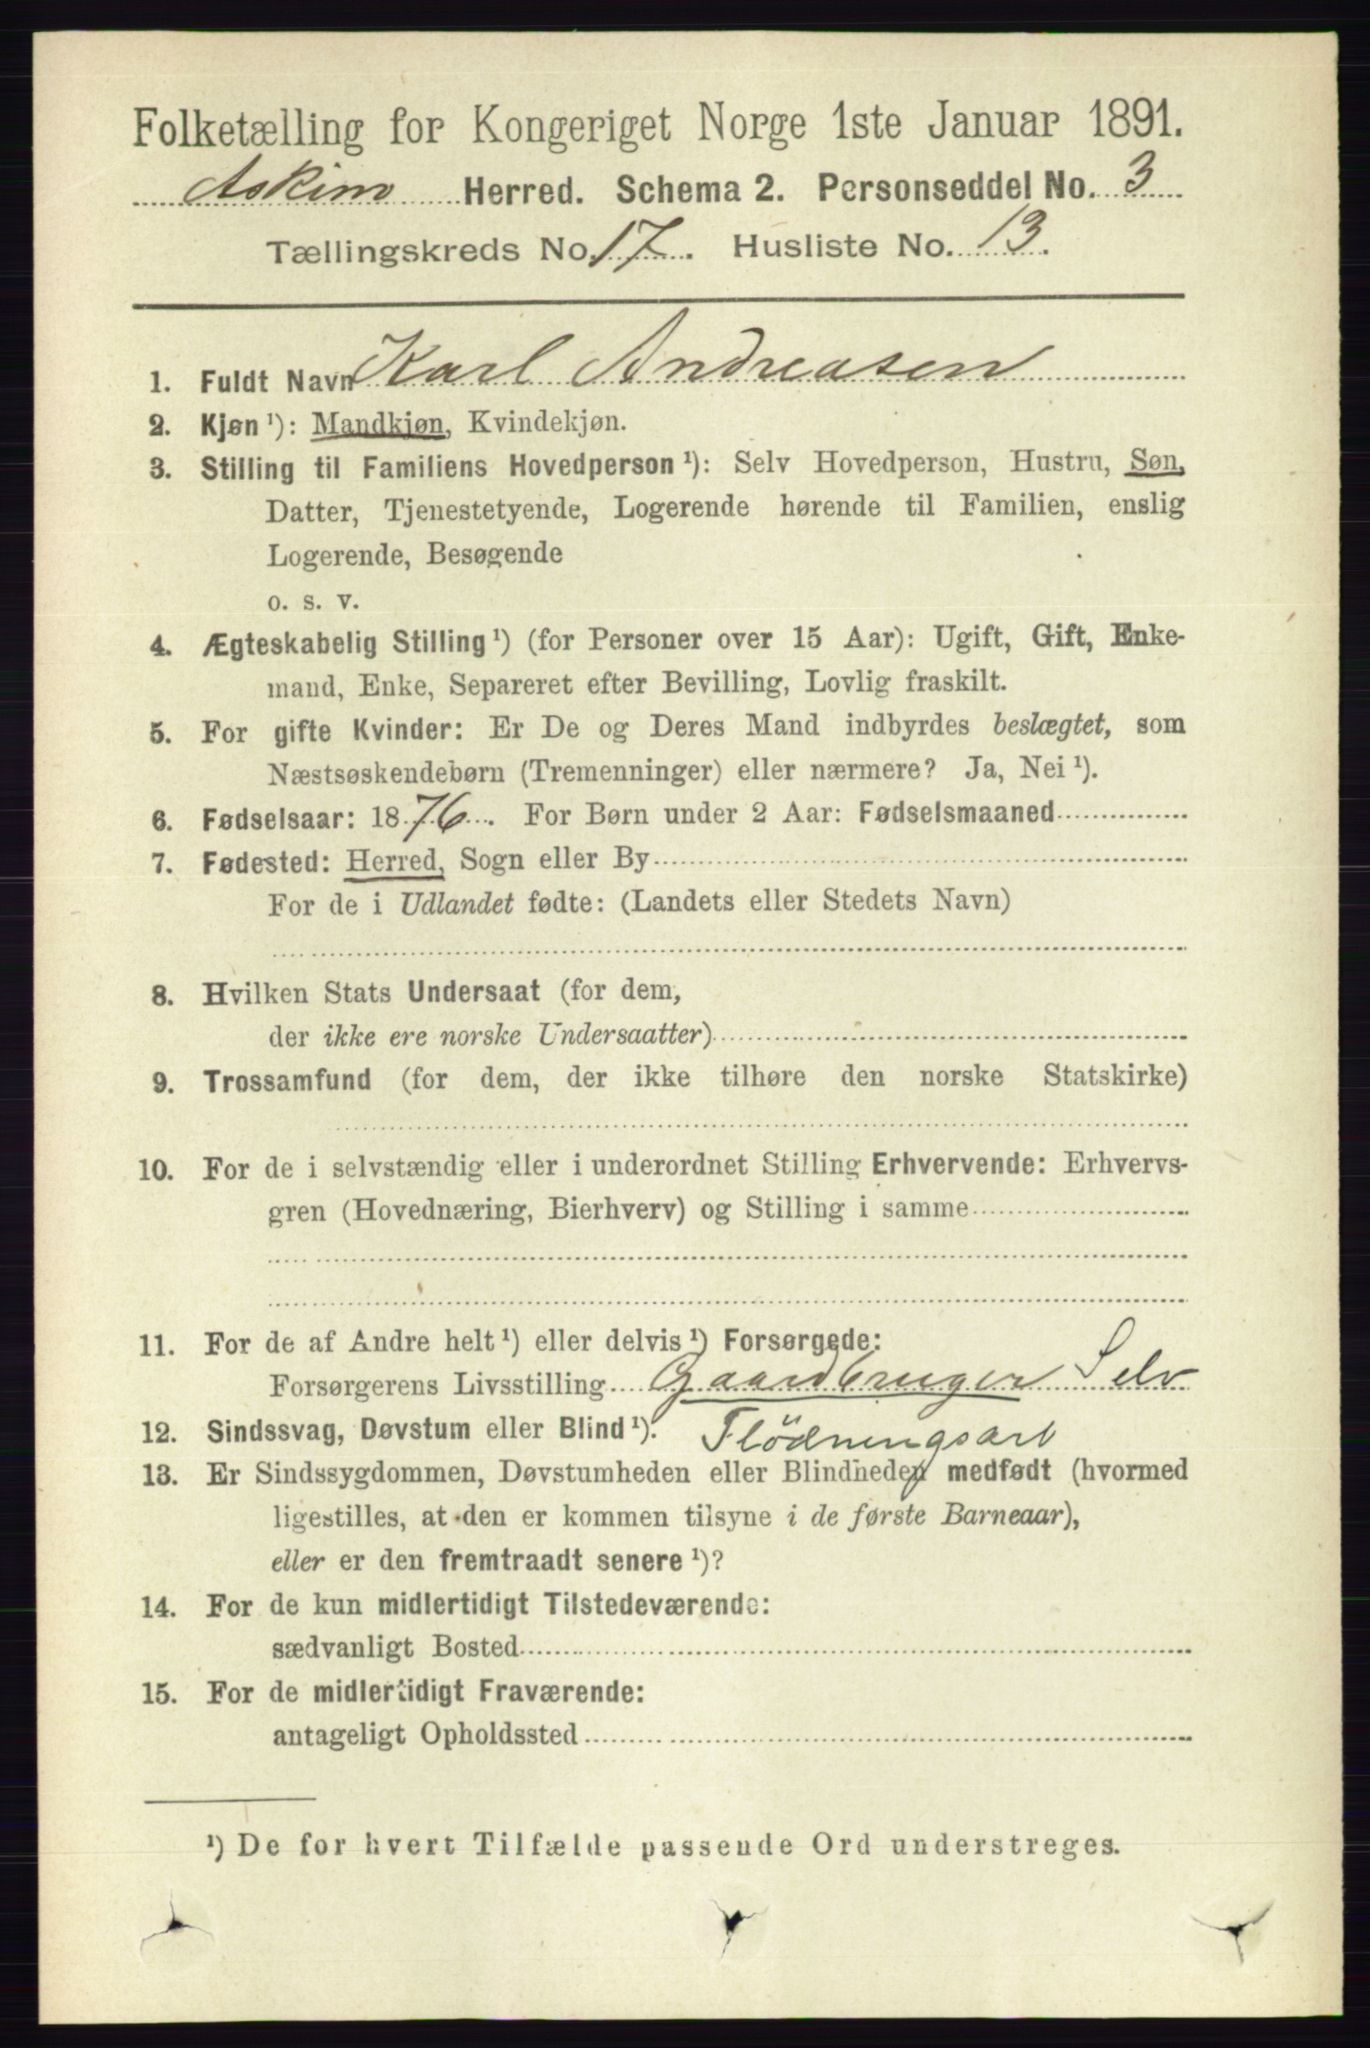 Folketælling for Kongeriget Norge 1ste Januar 1891.
Askim Herred. Schema 2. Personseddel No. 3
Tællingskreds No. 17. Husliste No. 13.
1. Fuldt Navn Karl Andreasen
2. Kjøn ¹): Mandkjøn, Kvindekjøn.
3. Stilling til Familiens Hovedperson ¹): Selv Hovedperson, Hustru, Søn,
Datter, Tjenestetyende, Logerende hørende til Familien, enslig
Logerende, Besøgende
o. s. v.
4. Ægteskabelig Stilling ¹) (for Personer over 15 Aar): Ugift, Gift, Enke-
mand, Enke, Separeret efter Bevilling, Lovlig fraskilt.
5. For gifte Kvinder: Er De og Deres Mand indbyrdes beslægtet, som
Næstsøskendebørn (Tremenninger) eller nærmere? Ja, Nei ¹).
6. Fødselsaar: 1876. For Børn under 2 Aar: Fødselsmaaned
7. Fødested: Herred, Sogn eller By
For de i Udlandet fødte: (Landets eller Stedets Navn)
8. Hvilken Stats Undersaat (for dem,
der ikke ere norske Undersaatter)
9. Trossamfund (for dem, der ikke tilhøre den norske Statskirke)
10. For de i selvstændig eller i underordnet Stilling Erhvervende: Erhvervs-
gren (Hovednæring, Bierhverv) og Stilling i samme
11. For de af Andre helt ¹) eller delvis ¹) Forsørgede:
Forsørgerens Livsstilling Gaardbruger Selv
12. Sindssvag, Døvstum eller Blind ¹). Flödningsarb
13. Er Sindssygdommen, Døvstumheden eller Blindheden medfødt (hvormed
ligestilles, at den er kommen tilsyne i de første Barneaar),
eller er den fremtraadt senere ¹)?
14. For de kun midlertidigt Tilstedeværende:
sædvanligt Bosted
15. For de midlertidigt Fraværende:
antageligt Opholdssted
¹) De for hvert Tilfælde passende Ord understreges.